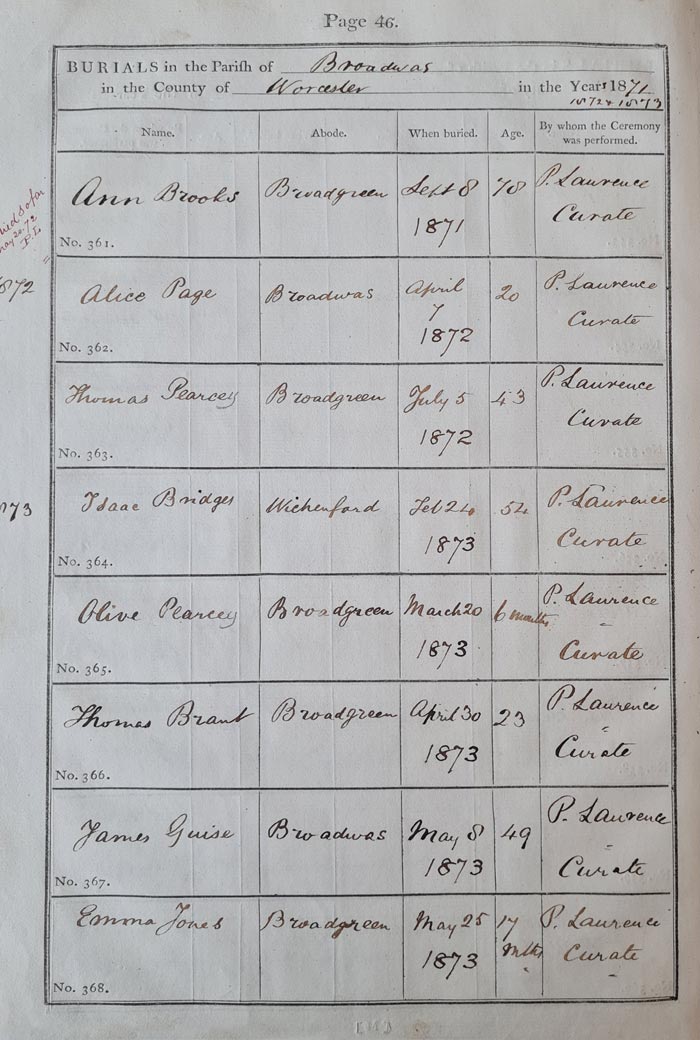 Page 46.
BURIALS in the Parish of Broadwas
in the County of Worcester in the Year 1871
1872 & 1873
Name. Abode. When buried. Age. By whom the Ceremony was performed.
Ann Brooks Broadgreen Sept 8 78 P. Laurence
1871 Curate
No. 361.
May 20. 72
P.L.
1872
Alice Page Broadwas April 20 P. Laurence
7 Curate
1872
No. 362.
Thomas Pearcey Broadgreen July 5 43 P. Laurence
1872 Curate
No. 363.
Isaac Bridges Wichenford Feb 24 54 P. Laurence
1873 Curate
No. 364.
73
Olive Pearcey Broadgreen March 20 6 months P. Laurence
1873 Curate
No. 365.
Thomas Brant Broadgreen April 30 23 P. Laurence
1873 Curate
No. 366.
James Guise Broadwas May 8 49 P. Laurence
1873 Curate
No. 367.
Emma Jones Broadgreen May 25 17 P. Laurence
1873 Mths Curate
No. 368.